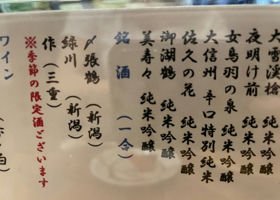 大雪渓槍
夜明け前 純米吟醸
女鳥羽の泉 純米吟醸
大信州 辛口特別純米
佐久の花 純米吟醸
御湖鶴 純米吟醸
美寿々 純米吟醸
銘酒(一合)
〆張鶴(新潟)
緑川(新潟)
作(三重)
※季節の限定酒ございます
ワイン